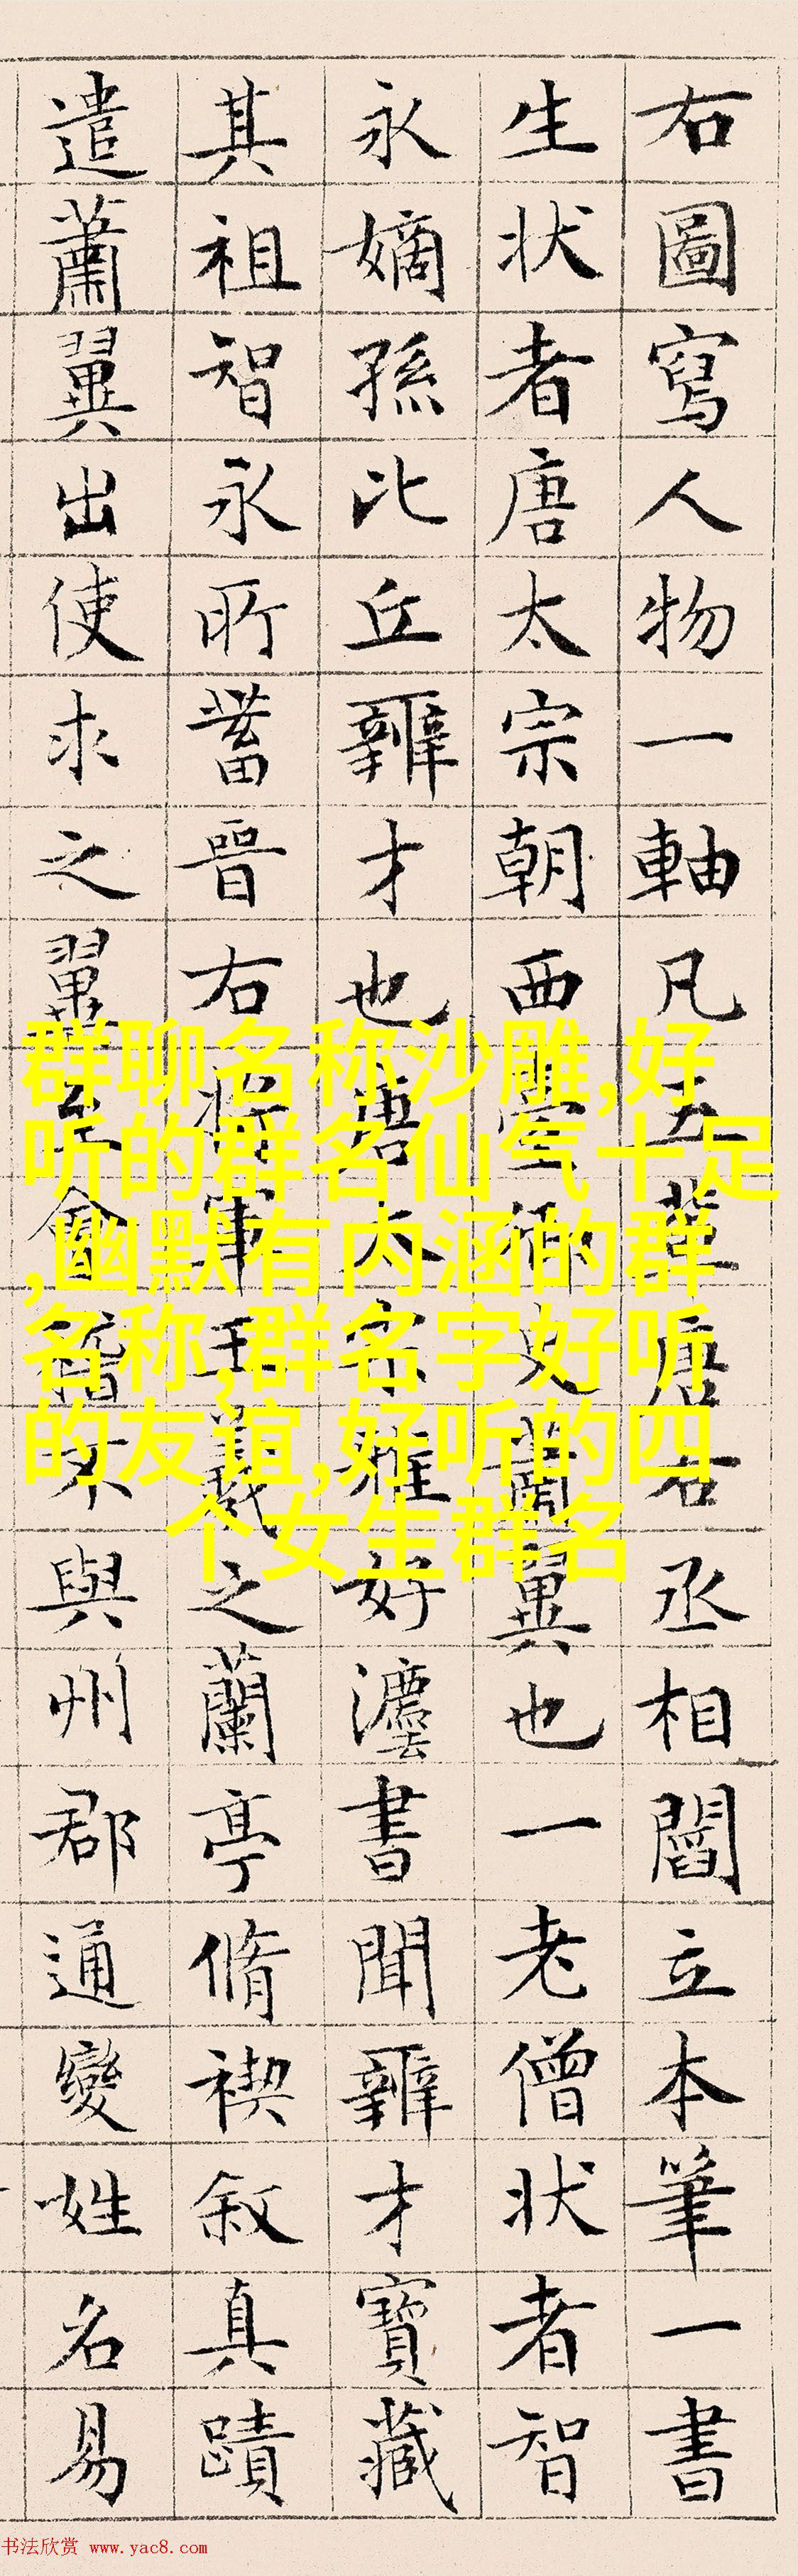 右圖寫人物一軸凡五輩唐右丞相閻立本筆一書
生状者唐太宗朝西臺御史蕭翼也一老僧状者智
永嫡孫比丘辯才也唐太宗雅好灋書聞辯才寶藏
其祖智永所蓄晉右將軍王羲之蘭亭脩禊叙真蹟
遣蕭翼出使求之翼至會稽不與州郡通變姓名易
群聊名称沙雕,好
听的群名仙气十足
,幽默有内涵的群
名称,群名字好听
的友谊,好听的四
个女生群名
书法欣赏 www.yac8.com